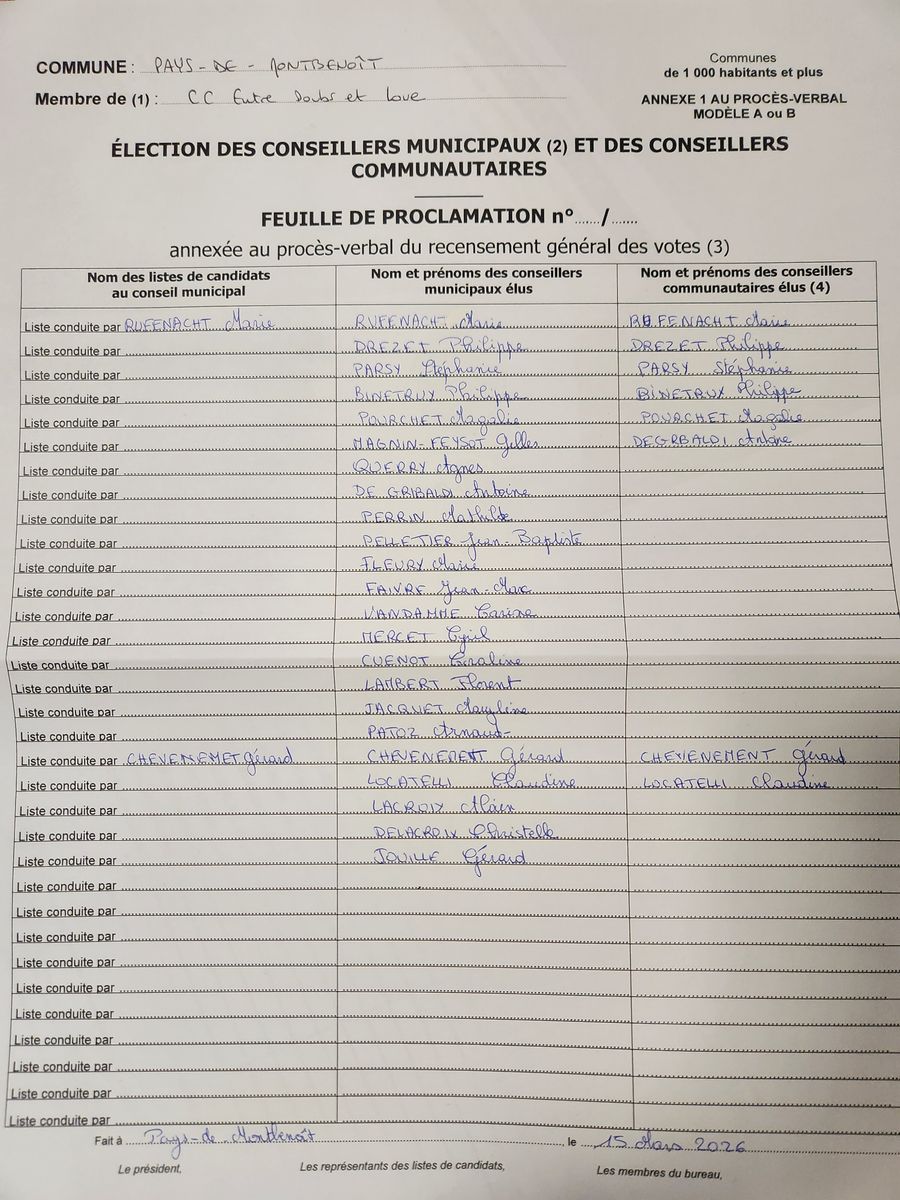 COMMUNE : PAYS-DE-MONTBENOÎT
Communes
de 1 000 habitants et plus
Membre de (1) : CC Entre Doubs et Loue
ANNEXE 1 AU PROCÈS-VERBAL
MODÈLE A ou B
ÉLECTION DES CONSEILLERS MUNICIPAUX (2) ET DES CONSEILLERS
COMMUNAUTAIRES
FEUILLE DE PROCLAMATION n°....../.......
annexée au procès-verbal du recensement général des votes (3)
Nom des listes de candidats
au conseil municipal
Nom et prénoms des conseillers
municipaux élus
Nom et prénoms des conseillers
communautaires élus (4)
Liste conduite par RUFENACHT Marie RUFENACHT Marie RUFENACHT Marie
Liste conduite par DREZET Philippe DREZET Philippe
Liste conduite par PARSY Stéphanie PARSY Stéphanie
Liste conduite par BINETRUY Philippe BINETRUY Philippe
Liste conduite par POURCHET Magalie POURCHET Magalie
Liste conduite par MAGNIN-FEYSOT Gilles DEGRBALDI Antoine
Liste conduite par QUERRY Agnes
Liste conduite par DE GRIBALDI Antoine
Liste conduite par PERRIN Mathilde
Liste conduite par PELLETIER Jean-Baptiste
Liste conduite par FLEURY Marie
Liste conduite par FAIVRE Jean-Marc
Liste conduite par VANDAMME Carine
Liste conduite par MERCET Cyril
Liste conduite par CUENOT Coraline
Liste conduite par LAMBERT Florent
Liste conduite par JACQUET Maryline
Liste conduite par PATOZ Arnaud
Liste conduite par CHEVENEMET Gérard CHEVENEMENT Gérard CHEVENEMENT Gérard
Liste conduite par LOCATELLI Claudine LOCATELLI Claudine
Liste conduite par LACROIX Alain
Liste conduite par DELACROIX Christelle
Liste conduite par JOUILLE Gérard
Liste conduite par
Liste conduite par
Liste conduite par
Liste conduite par
Liste conduite par
Liste conduite par
Liste conduite par
Liste conduite par
Liste conduite par
Liste conduite par
Fait à Pays-de-Montbenoît, le 15 Mars 2026
Le président, Les représentants des listes de candidats, Les membres du bureau,